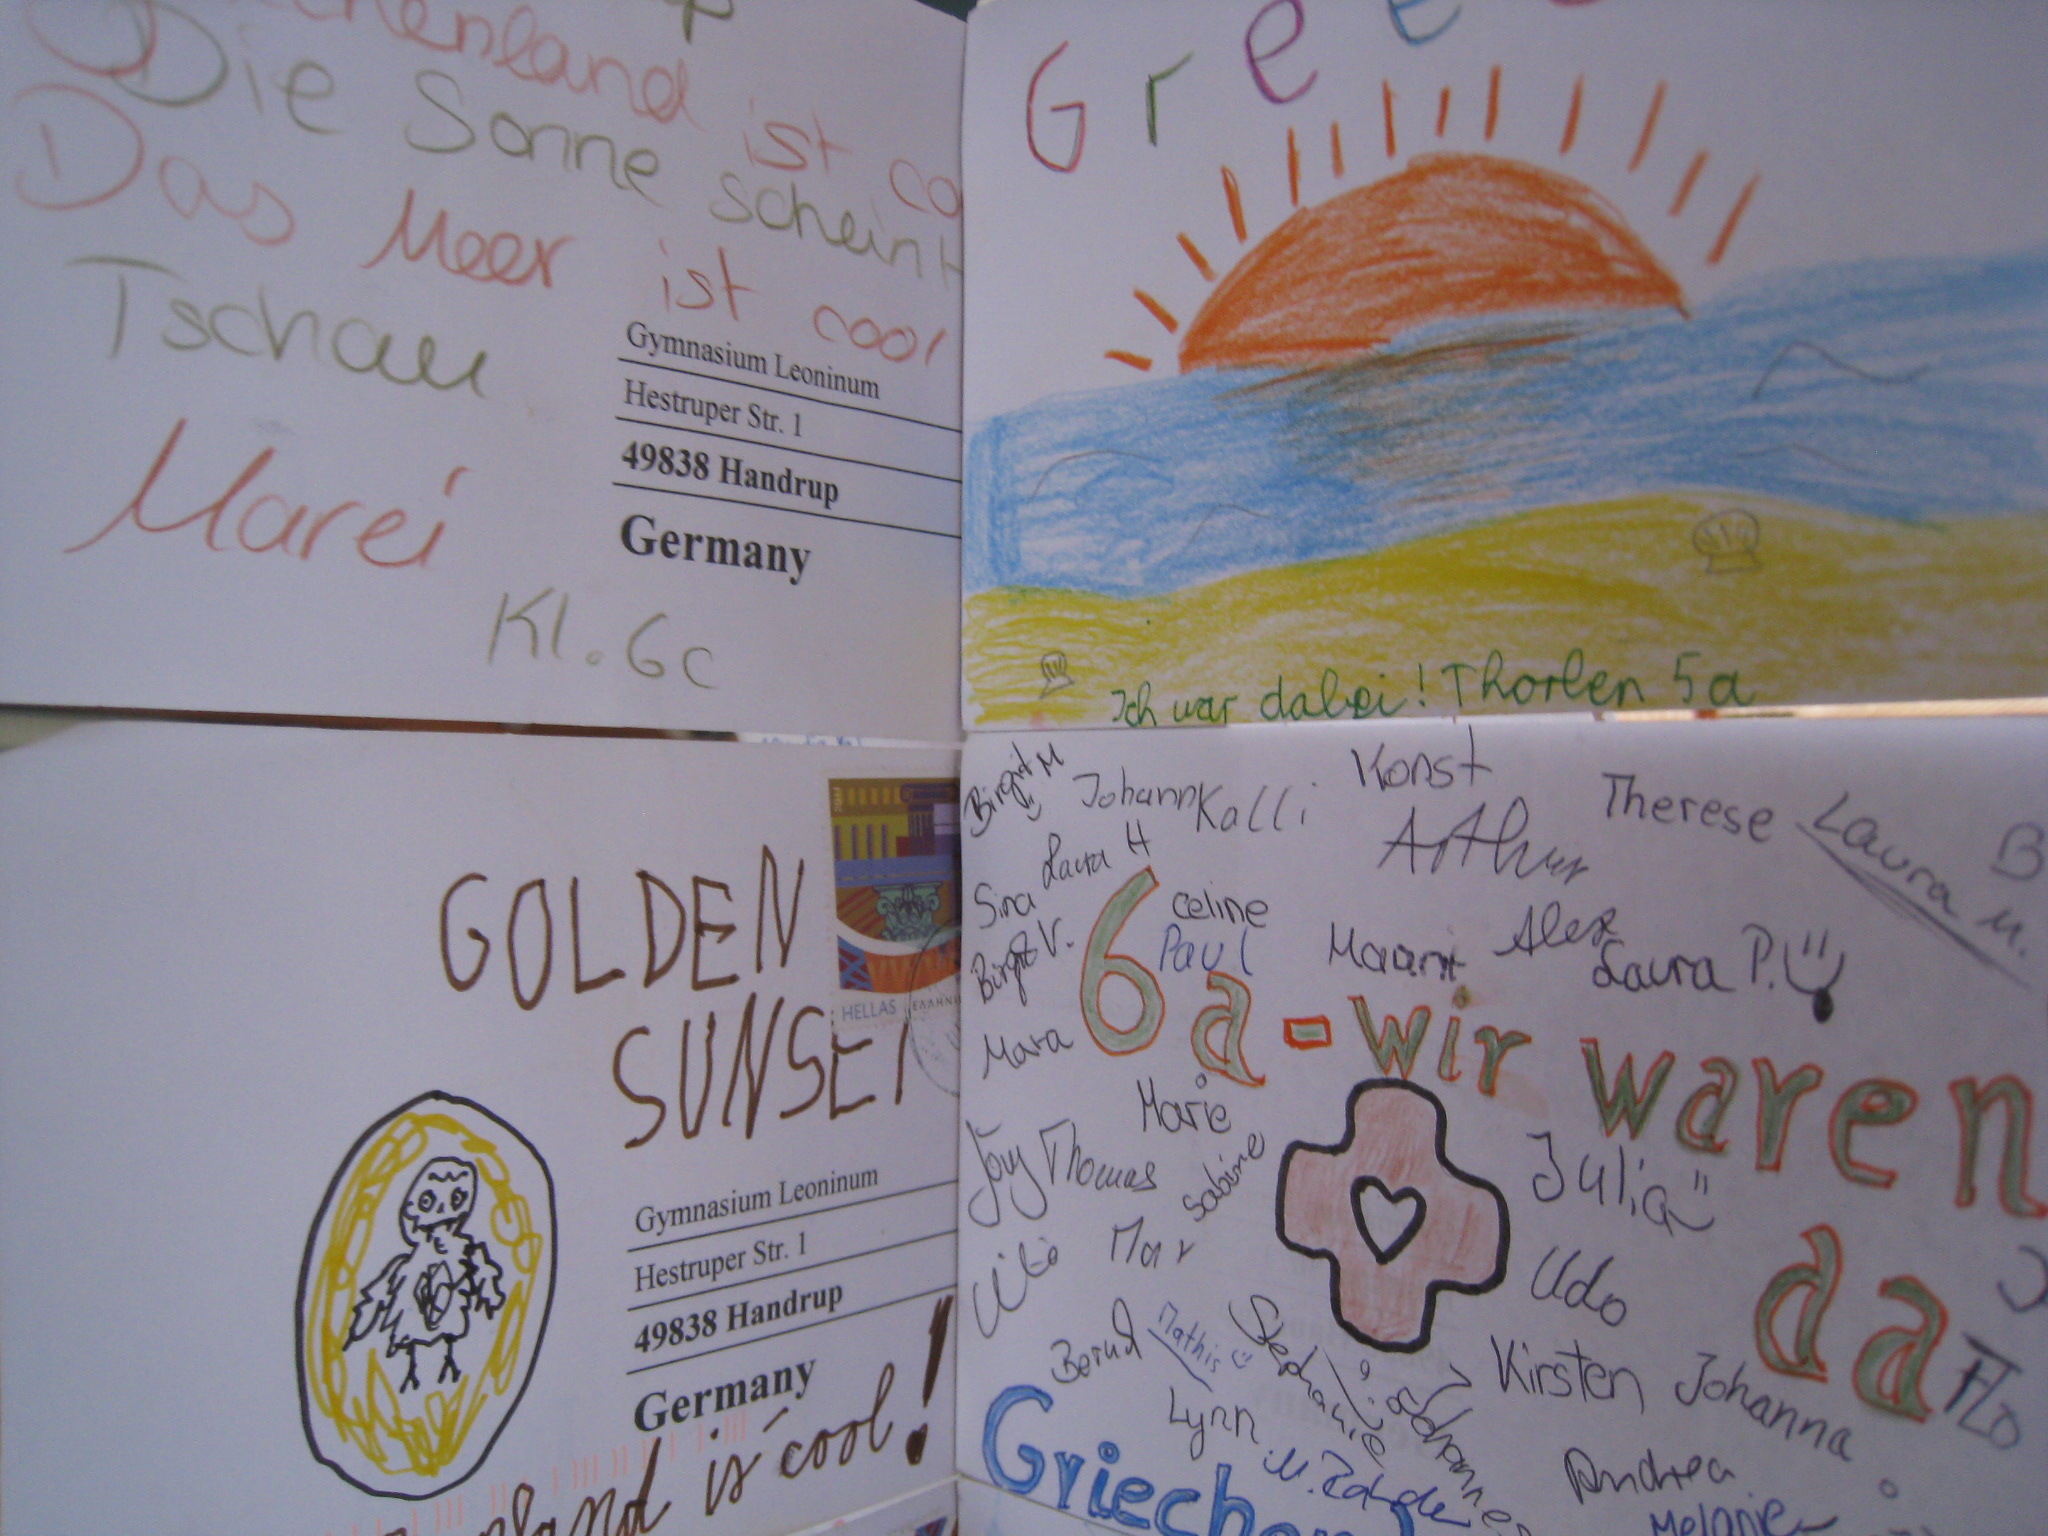 chenland ist co
Die Sonne scheint
Das Meer ist cool
Tschau
Marei
Kl. 6c
Gymnasium Leoninum
Hestruper Str. 1
49838 Handrup
Germany
Gree
Ich war dabei! Thorben 5a
GOLDEN
SUNSET
HELLAS
Gymnasium Leoninum
Hestruper Str. 1
49838 Handrup
Germany
land is cool!
Birgit M
Johann
Kalli
Konst
Arthur
Therese
Laura M.
Laura H
Sina
Celine
Paul
Birgit V.
Maarit
Alex
Laura P.
Mara
6a-wir waren
da
Marie
Thomas
Sabine
Julia
Mar
Udo
Bernd
Mathis
Stephanie
Johannes
Kirsten
Johanna
Flo
Lynn
Andrea
Melanie
Griechenl